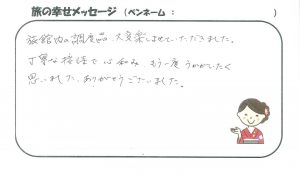 旅の幸せメッセージ (ペンネーム : )
旅館内の調度品、大変楽しませていただきました。
丁寧な接待で心和み、もう一度うかがいたく
思いました。ありがとうございました。